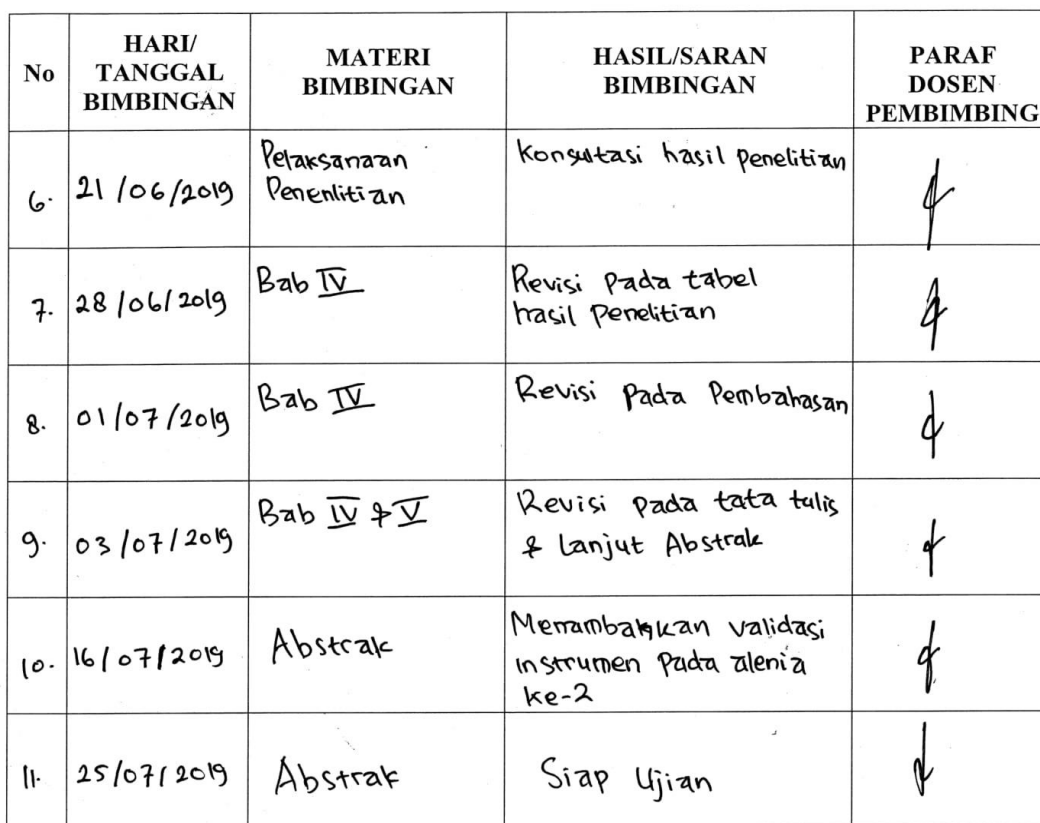 No
HARI/
TANGGAL
BIMBINGAN
MATERI
BIMBINGAN
HASIL/SARAN
BIMBINGAN
PARAF
DOSEN
PEMBIMBING
6.
21/06/2019
Pelaksanaan
Penenlitian
Konsultasi hasil penelitian
7.
28/06/2019
Bab IV
Revisi pada tabel
hasil Penelitian
8.
01/07/2019
Bab IV
Revisi pada Pembahasan
9.
03/07/2019
Bab IV & V
Revisi pada tata tulis
& Lanjut Abstrak
10.
16/07/2019
Abstrak
Menambahkan validasi
instrumen pada alenia
ke-2
11.
25/07/2019
Abstrak
Siap Ujian